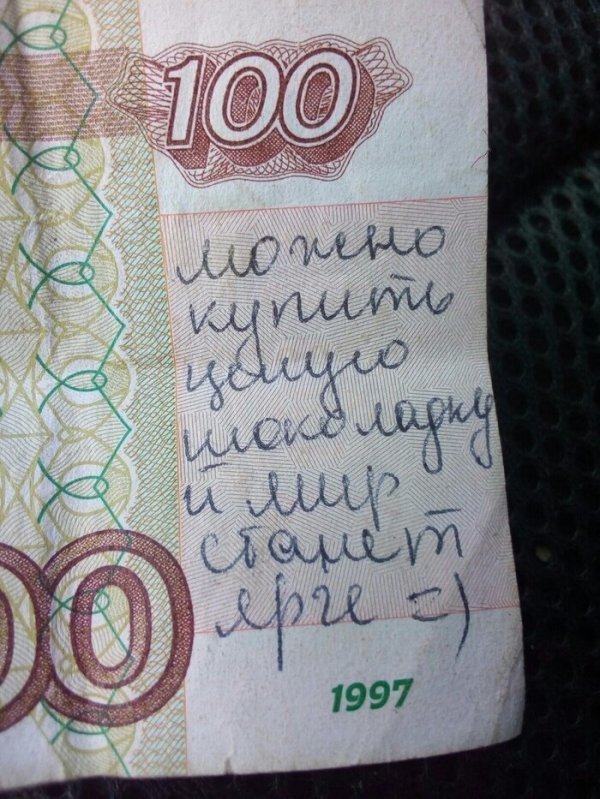 100
можно
купить
целую
шоколадку
и мир
станет
ярче =)
00
1997